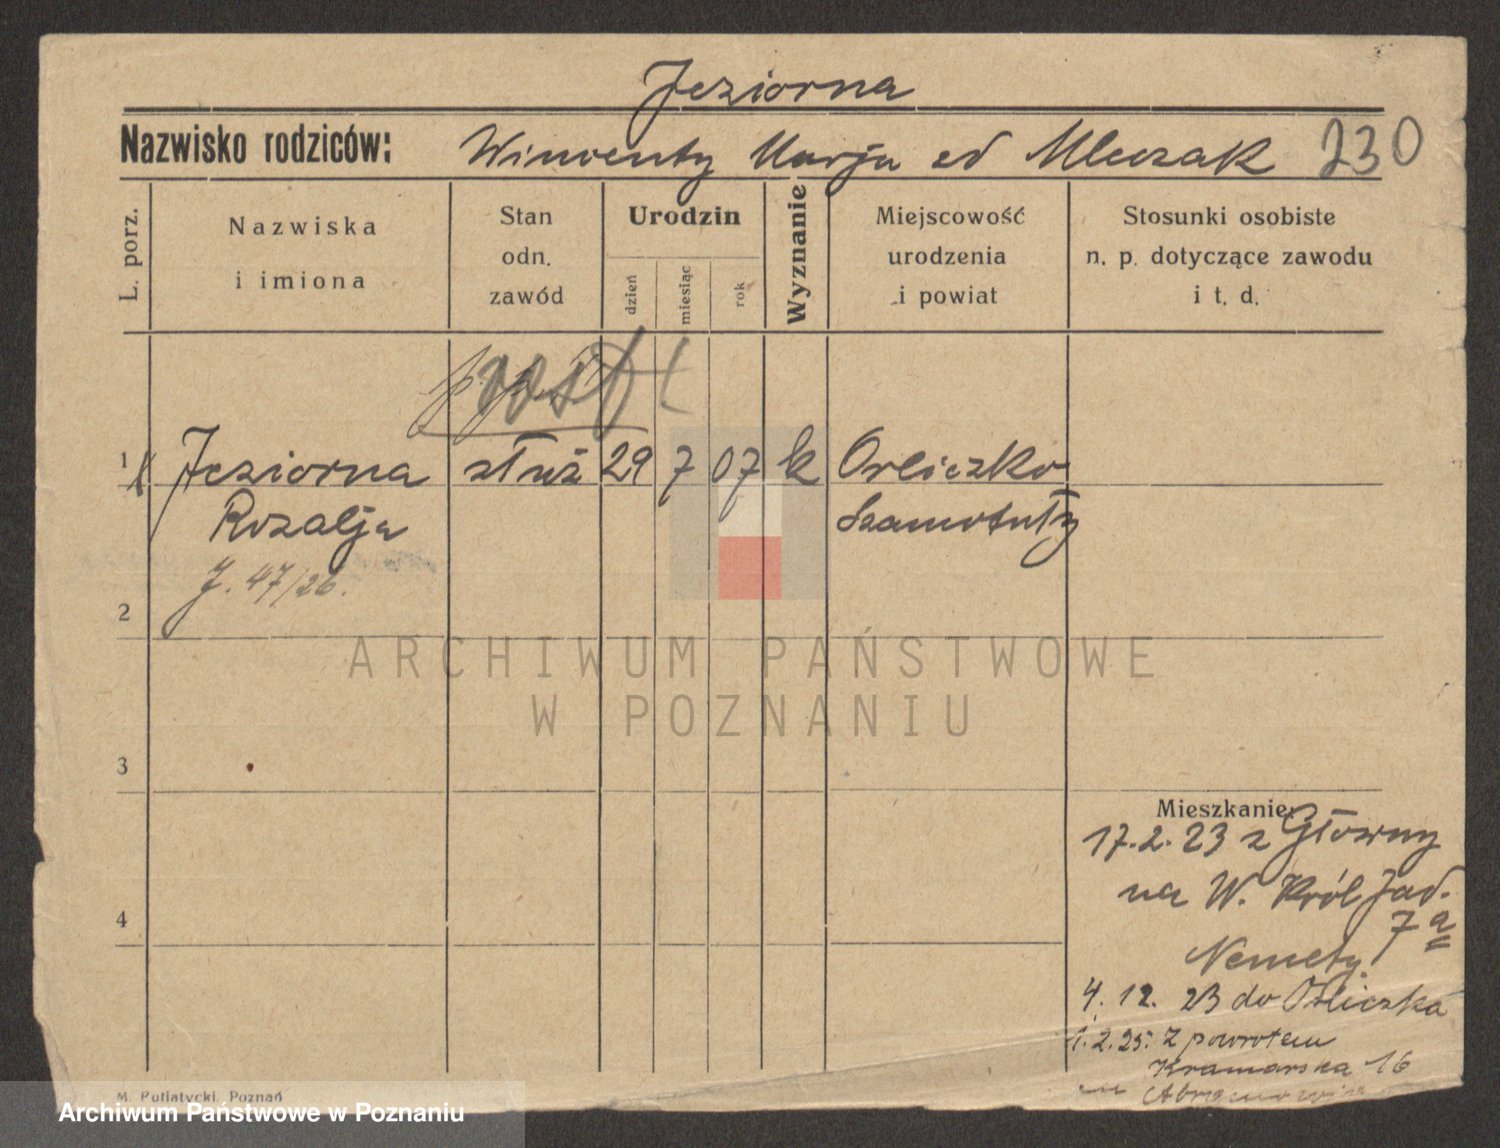 Jeziorna
Nazwisko rodziców: Wincenty Marja od Mleczak 230
L. porz.
Nazwiska
i imiona
Stan
odn.
zawód
Urodzin
dzień
miesiąc
rok
Wyznanie
Miejscowość
urodzenia
i powiat
Stosunki osobiste
n. p. dotyczące zawodu
i t. d.
1 Jeziorna służ 29 7 07 k Orliczko
Rozalja Szamotuły
J. 47/26.
2
ARCHIWUM PAŃSTWOWE
W POZNANIU
3
Mieszkanie:
17.2.23 z Główny
na W. Król Jad.
7a
4
Nemety
4.12.23 do Orliczka
1.2.25. z powrotem
Kramarska 16
M. Putiatycki, Poznań
Archiwum Państwowe w Poznaniu